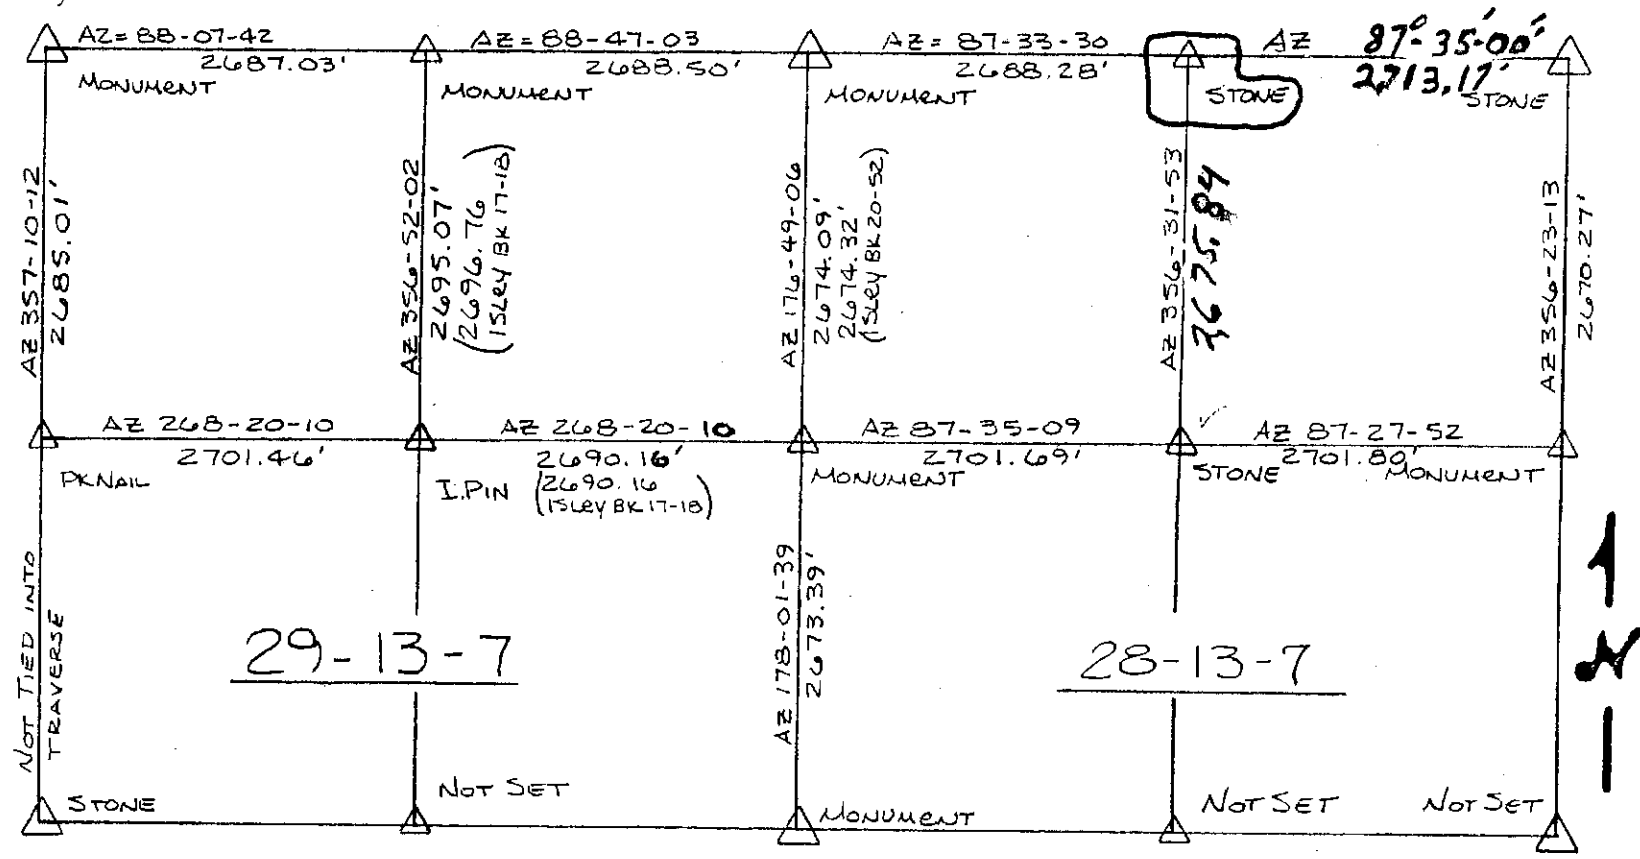 AZ= 88-07-42
2687.03'
MONUMENT
AZ= 88-47-03
2688.50'
MONUMENT
AZ= 87-33-30
2688.28'
MONUMENT
AZ 87°-35'-00'
2,713.17'
STONE
STONE
AZ 357-10-12
2685.01'
AZ 356-52-02
2695.07'
(2696.76
ISLEY BK 17-18)
AZ 176-49-06
2674.09'
2674.32'
(ISLEY BK 20-52)
AZ 356-31-53
2,675.84
AZ 356-23-13
2670.27'
AZ 268-20-10
2701.46'
PK NAIL
AZ 268-20-10
2690.16'
I.PIN
(2690.16
ISLEY BK 17-18)
AZ 87-35-09
2701.69'
MONUMENT
AZ 87-27-52
2701.80'
STONE
MONUMENT
NOT TIED INTO
TRAVERSE
29-13-7
AZ 178-01-39
2673.39'
28-13-7
N
STONE
NOT SET
MONUMENT
NOT SET
NOT SET